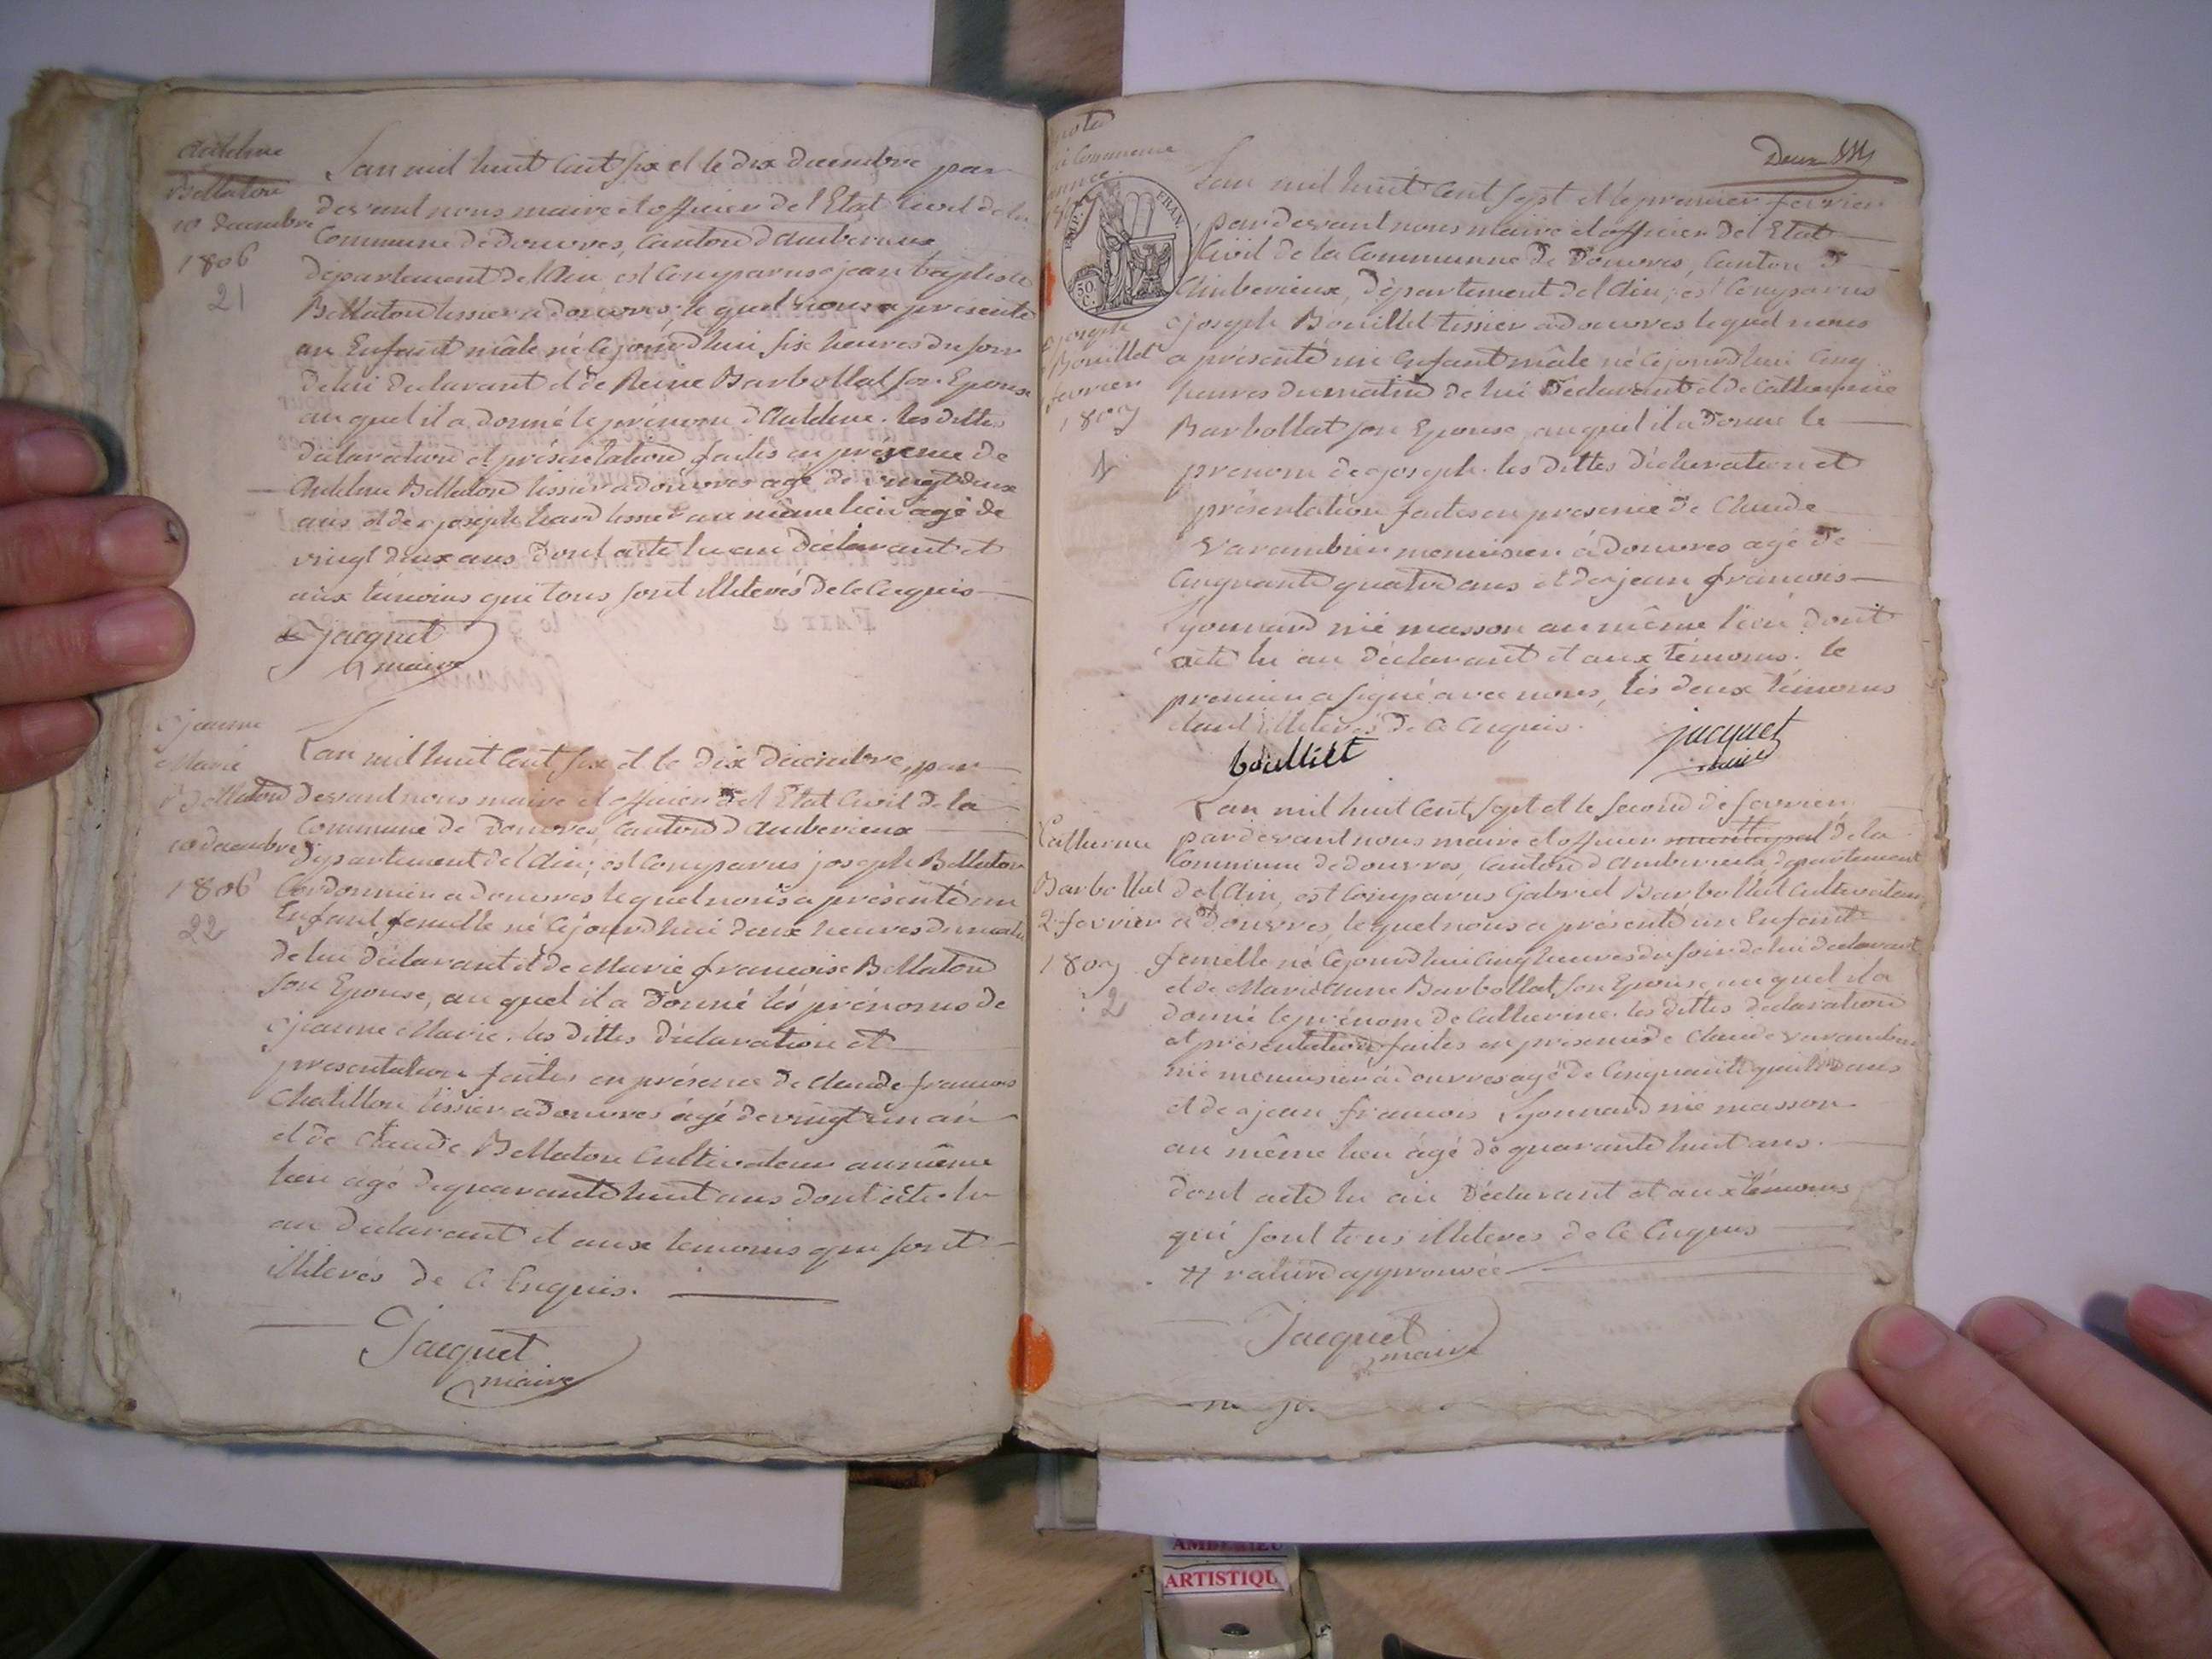 Anthelme
Bellaton
10 decembre
1806
21
L'an mil huit cent six et le dix decembre par
devant nous maire et officier de l'Etat Civil de la
Commune de Douvres, Canton d'Amberieux
département de l'Ain est Comparus jean baptiste
Bellaton tissier a douvres, le quel nous a présenté
un Enfant mâle né Cejourd'hui six heures du soir
de lui declarant et de Reine Barbollat son Epouse
au quel il a donné le prénom d'Anthelme. les dittes
déclaration et présentation faites en présence de
Anthelme Bellaton tissier a douvres agé de vingt deux
ans et de joseph tissier au même lieu agé de
vingt deux ans dont acte lu au déclarant et
aux témoins qui tous sont illiterés de ce Enquis
Jacquet
maire
jeanne
Marie
Bellaton
10 decembre
1806
22
L'an mil huit Cent six et le dix decembre, par
devant nous maire et officier de l'Etat Civil de la
Commune de Douvres, Canton d'Amberieux
département de l'Ain, est Comparus joseph Bellaton
Cordonnier a douvres le quel nous a présenté un
Enfant femelle né Cejourd'hui deux heures du matin
de lui déclarant et de Marie françoise Bellaton
son Epouse, au quel il a donné les prénoms de
jeanne Marie. les dittes déclaration et
presentation faites en présence de claude francois
Chatillon tissier a douvres âgé de vingt un an
et de Claude Bellaton Cultivateur au même
lieu agé de quarante huit ans dont acte lu
au declarant et aux temoins qui sont
illiterés de ce Enquis.
Jacquet
maire
Deux
Commune
année
EMP. FRAN.
50 C.
joseph
Bouillet
fevrier
1807
1
L'an mil huit Cent sept et le premier fevrier
par devant nous maire et officier de l'Etat
Civil de la Commune de Douvres, Canton d'
Amberieux, département de l'Ain, est Comparus
joseph Bouillet tissier a douvres le quel nous
a présenté un Enfant mâle né Cejourd'hui Cinq
heures du matin de lui Déclarant et de Catherinne
Barbollat son Epouse, au quel il a Donné le
prenom de joseph. les dittes déclaration et
présentation faites en presence de Claude
Varambier menuisier à douvres agé de
Cinquante quatre ans et de jean françois
Lyonnard nié masson au même lieu dont
acte lu au déclarant et aux témoins. le
premier a signé avec nous, les deux témoins
étant illiterés de ce Enquis.
boulliet
jacquet
maire
Catherine
Barbollat
2 fevrier
1807
2
L'an mil huit Cent sept et le second de fevrier
pardevant nous maire et officier municipal de la
Commune de douvres, Canton d'Amberieux, departement
de l'Ain, est Comparus Gabriel Barbollat Cultivateur
a Douvres, le quel nous a présenté un Enfant
femelle né Cejourd'hui Cinq heures du soir de lui declarant
et de Marianne Barbollat, son Epouse, au quel il a
donné le prénom de Catherine. les dittes declaration
et présentation faites en presence de Claude Varambier
nié menuisier à douvres agé de Cinquante quatre ans
et de jean françois Lyonnard nié masson
au même lieu âgé de quarante huit ans.
dont acte lu au Déclarant et aux témoins
qui sont tous illiterés de ce Enquis
rature approuvée
Jacquet
maire
AMBERIEU
ARTISTIQU